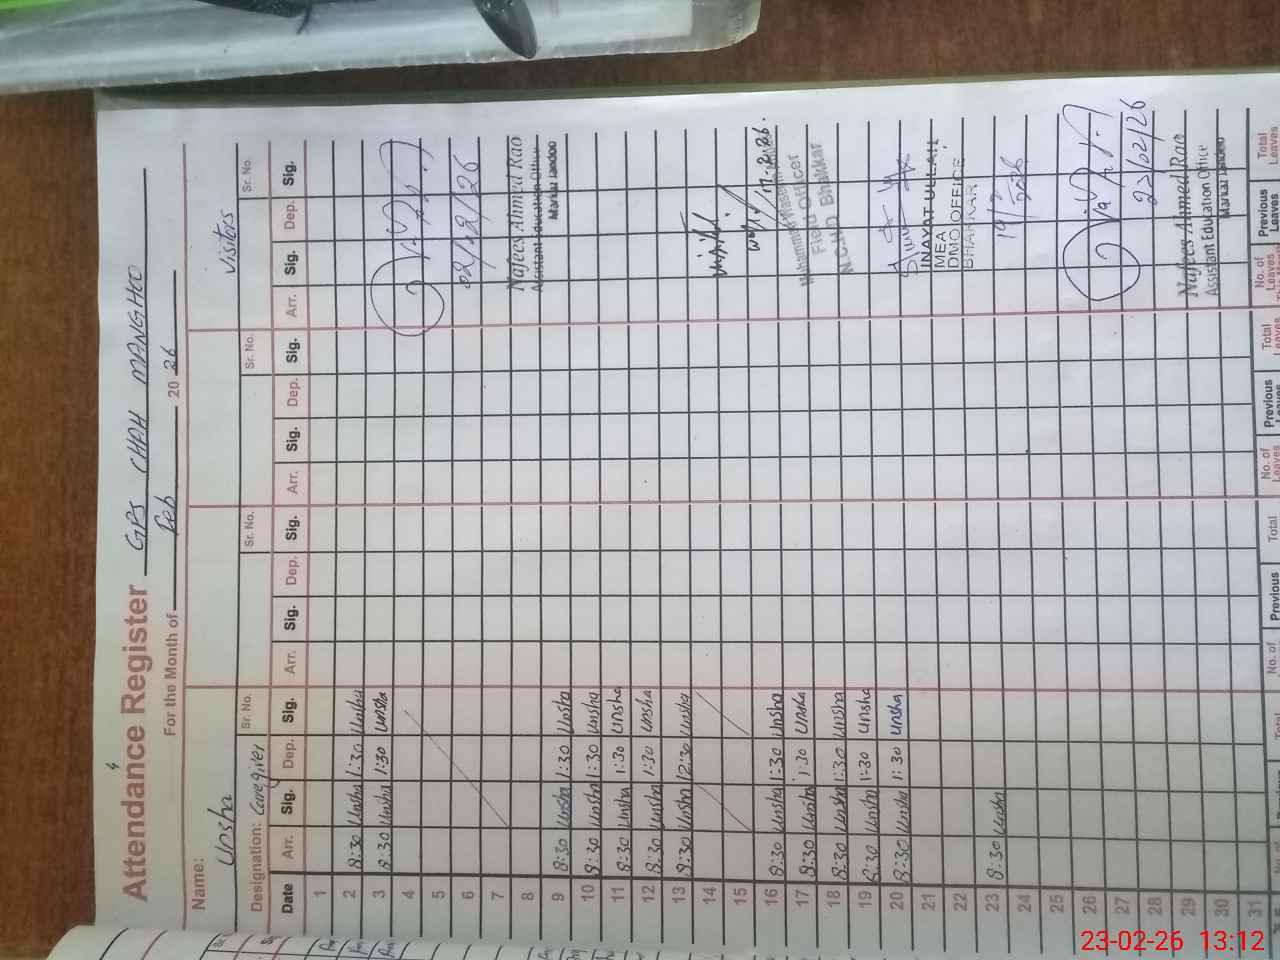 Attendance Register GPS CHAH MANGHO
For the Month of Feb 2026
Name: Unsha
Visitors
Designation: Caregiver Sr. No. Sr. No. Sr. No. Sr. No.
Date Arr. Sig. Dep. Sig. Arr. Sig. Dep. Sig. Arr. Sig. Dep. Sig. Arr. Sig. Dep. Sig.
1
2 8:30 Unsha 1:30 Unsha
3 8:30 Unsha 1:30 Unsha
4
5
6 02/02/26
7
8 Nafees Ahmed Rao
Assistant Education Officer
9 8:30 Unsha 1:30 Unsha
10 8:30 Unsha 1:30 Unsha
11 8:30 Unsha 1:30 Unsha
12 8:30 Unsha 1:30 Unsha
13 8:30 Unsha 12:30 Unsha
14
15
16 8:30 Unsha 1:30 Unsha 17-2-26.
17 8:30 Unsha 1:30 Unsha Muhammad Waseem
Field Officer
18 8:30 Unsha 1:30 Unsha N.C.H.D Bhakkar
19 8:30 Unsha 1:30 Unsha
20 8:30 Unsha 1:30 Unsha
21 INAYAT ULLAH
MEA
22 DMO OFFICE
BHAKKAR
23 8:30 Unsha
24
25
26
27 23/02/26
28
29 Nafees Ahmed Rao
Assistant Education Officer
30
31
No. of Previous Total No. of Leaves Previous Leaves Total Leaves No. of Leaves Previous Leaves Total Leaves
23-02-26 13:12